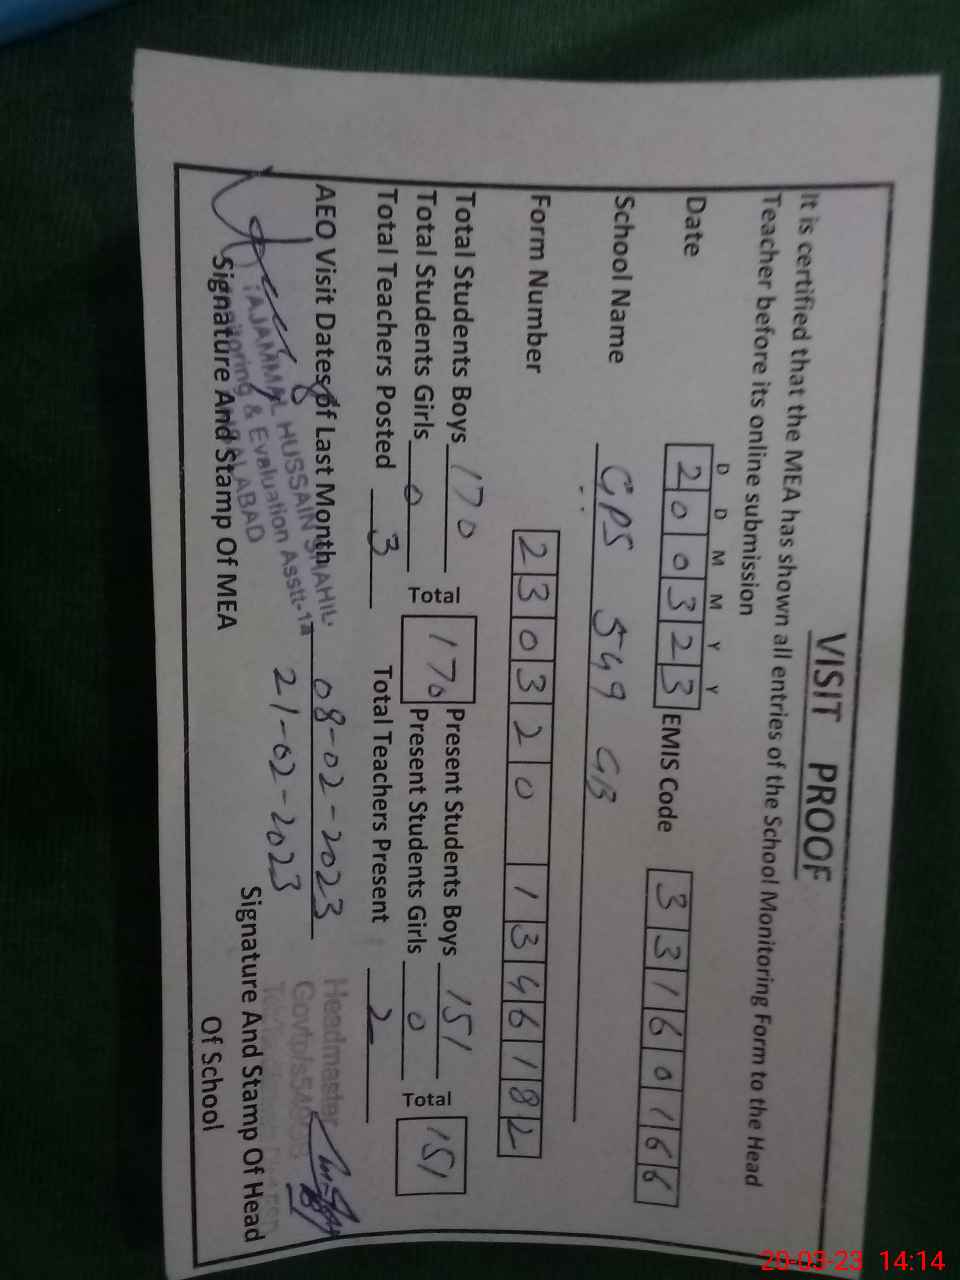 VISIT PROOF
It is certified that the MEA has shown all entries of the School Monitoring Form to the Head
Teacher before its online submission
D D M M Y Y
Date 2 0 0 3 2 3 EMIS Code 3 3 1 6 0 1 6 6
School Name GPS 549 GB
Form Number 2 3 0 3 2 0 1 3 4 6 1 8 2
Total Students Boys 170 Total 170 Present Students Boys 151 Total 151
Total Students Girls 0 Present Students Girls 0
Total Teachers Posted 3 Total Teachers Present 2
AEO Visit Dates of Last Month 08-02-2023
21-02-2023
TAJAMMAL HUSSAIN
Monitoring & Evaluation Asstt-1
Headmaster
Signature And Stamp Of MEA
Signature And Stamp Of Head
Of School
20-03-23 14:14